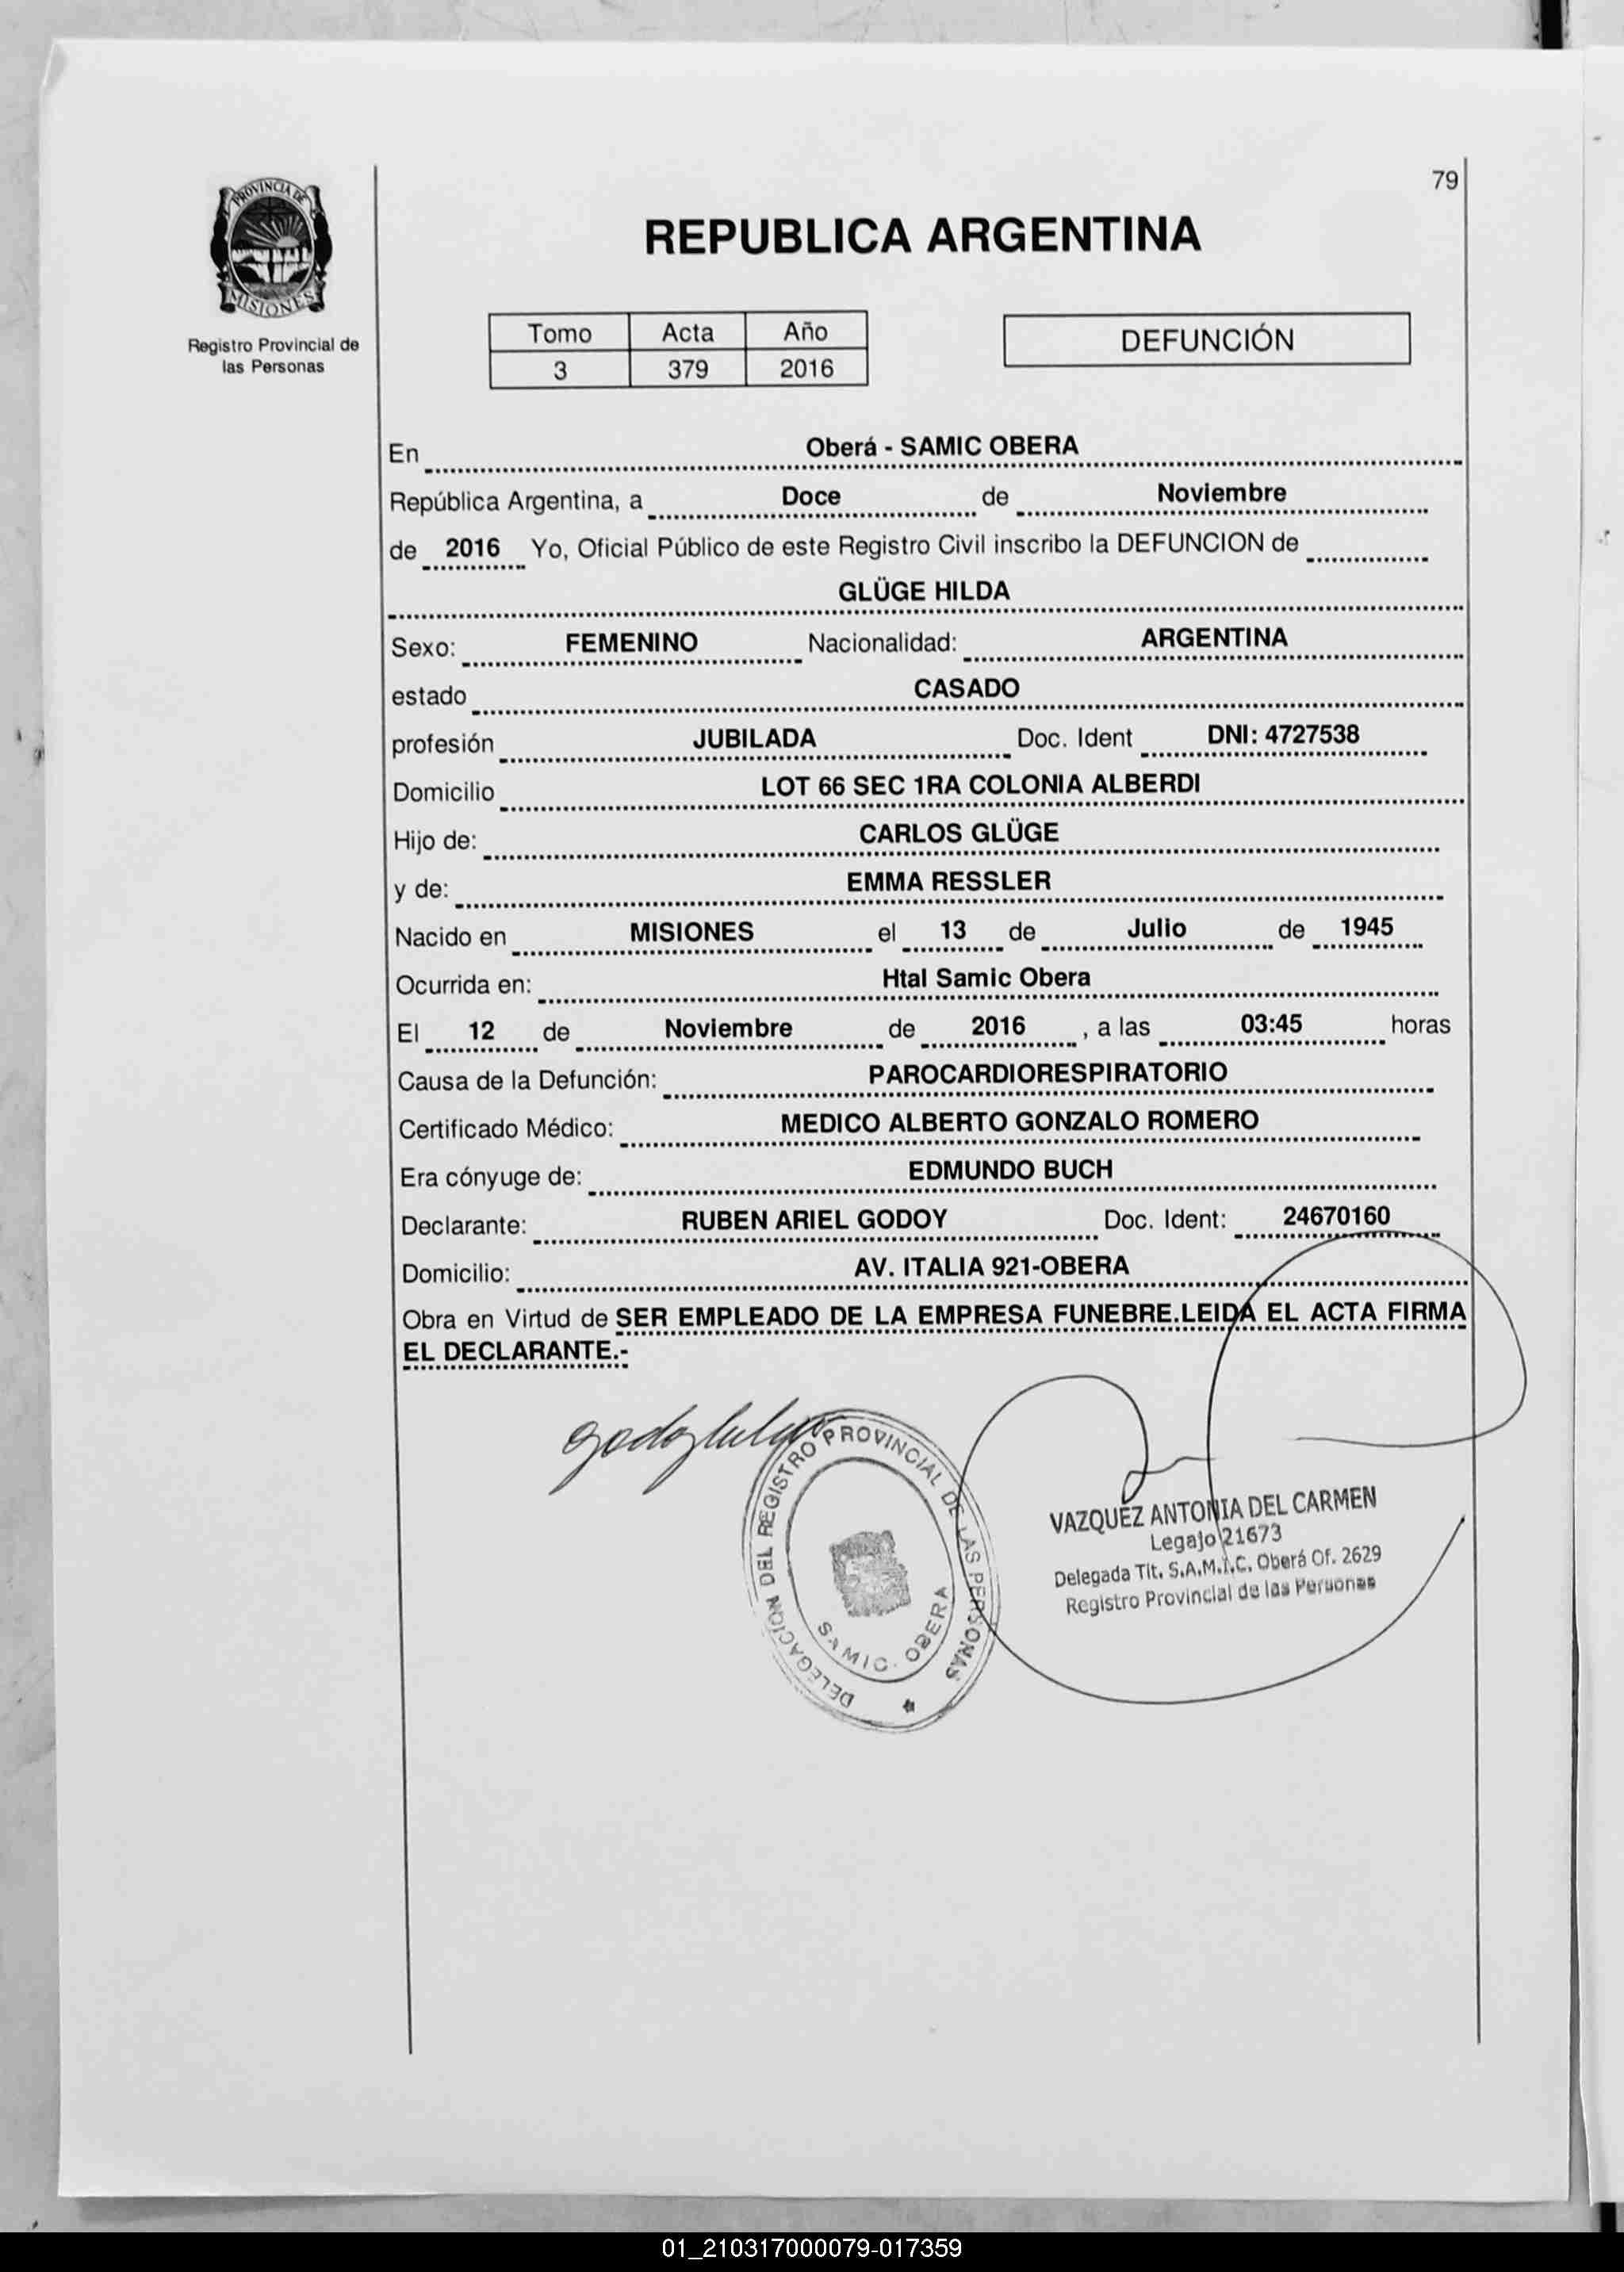 79
PROVINCIA DE
MISIONES
Registro Provincial de
las Personas
REPUBLICA ARGENTINA
Tomo Acta Año
3 379 2016
DEFUNCIÓN
En Oberá - SAMIC OBERA
República Argentina, a Doce de Noviembre
de 2016 Yo, Oficial Público de este Registro Civil inscribo la DEFUNCION de
GLÜGE HILDA
Sexo: FEMENINO Nacionalidad: ARGENTINA
estado CASADO
profesión JUBILADA Doc. Ident DNI: 4727538
Domicilio LOT 66 SEC 1RA COLONIA ALBERDI
Hijo de: CARLOS GLÜGE
y de: EMMA RESSLER
Nacido en MISIONES el 13 de Julio de 1945
Ocurrida en: Htal Samic Obera
El 12 de Noviembre de 2016 , a las 03:45 horas
Causa de la Defunción: PAROCARDIORESPIRATORIO
Certificado Médico: MEDICO ALBERTO GONZALO ROMERO
Era cónyuge de: EDMUNDO BUCH
Declarante: RUBEN ARIEL GODOY Doc. Ident: 24670160
Domicilio: AV. ITALIA 921-OBERA
Obra en Virtud de SER EMPLEADO DE LA EMPRESA FUNEBRE.LEIDA EL ACTA FIRMA
EL DECLARANTE.-
DELEGACIÓN DEL REGISTRO PROVINCIAL DE LAS PERSONAS
SAMIC. OBERA
VAZQUEZ ANTONIA DEL CARMEN
Legajo 21673
Delegada Tit. S.A.M.I.C. Oberá Of. 2629
Registro Provincial de las Personas
01_210317000079-017359